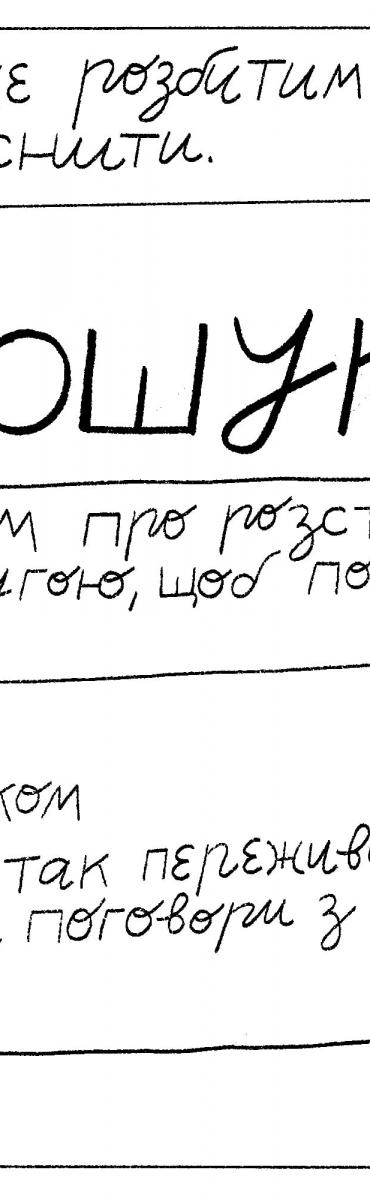 ує розбитим
снити.
ошук
м про розст
игою, щоб по
ком
так пережив
поговори з